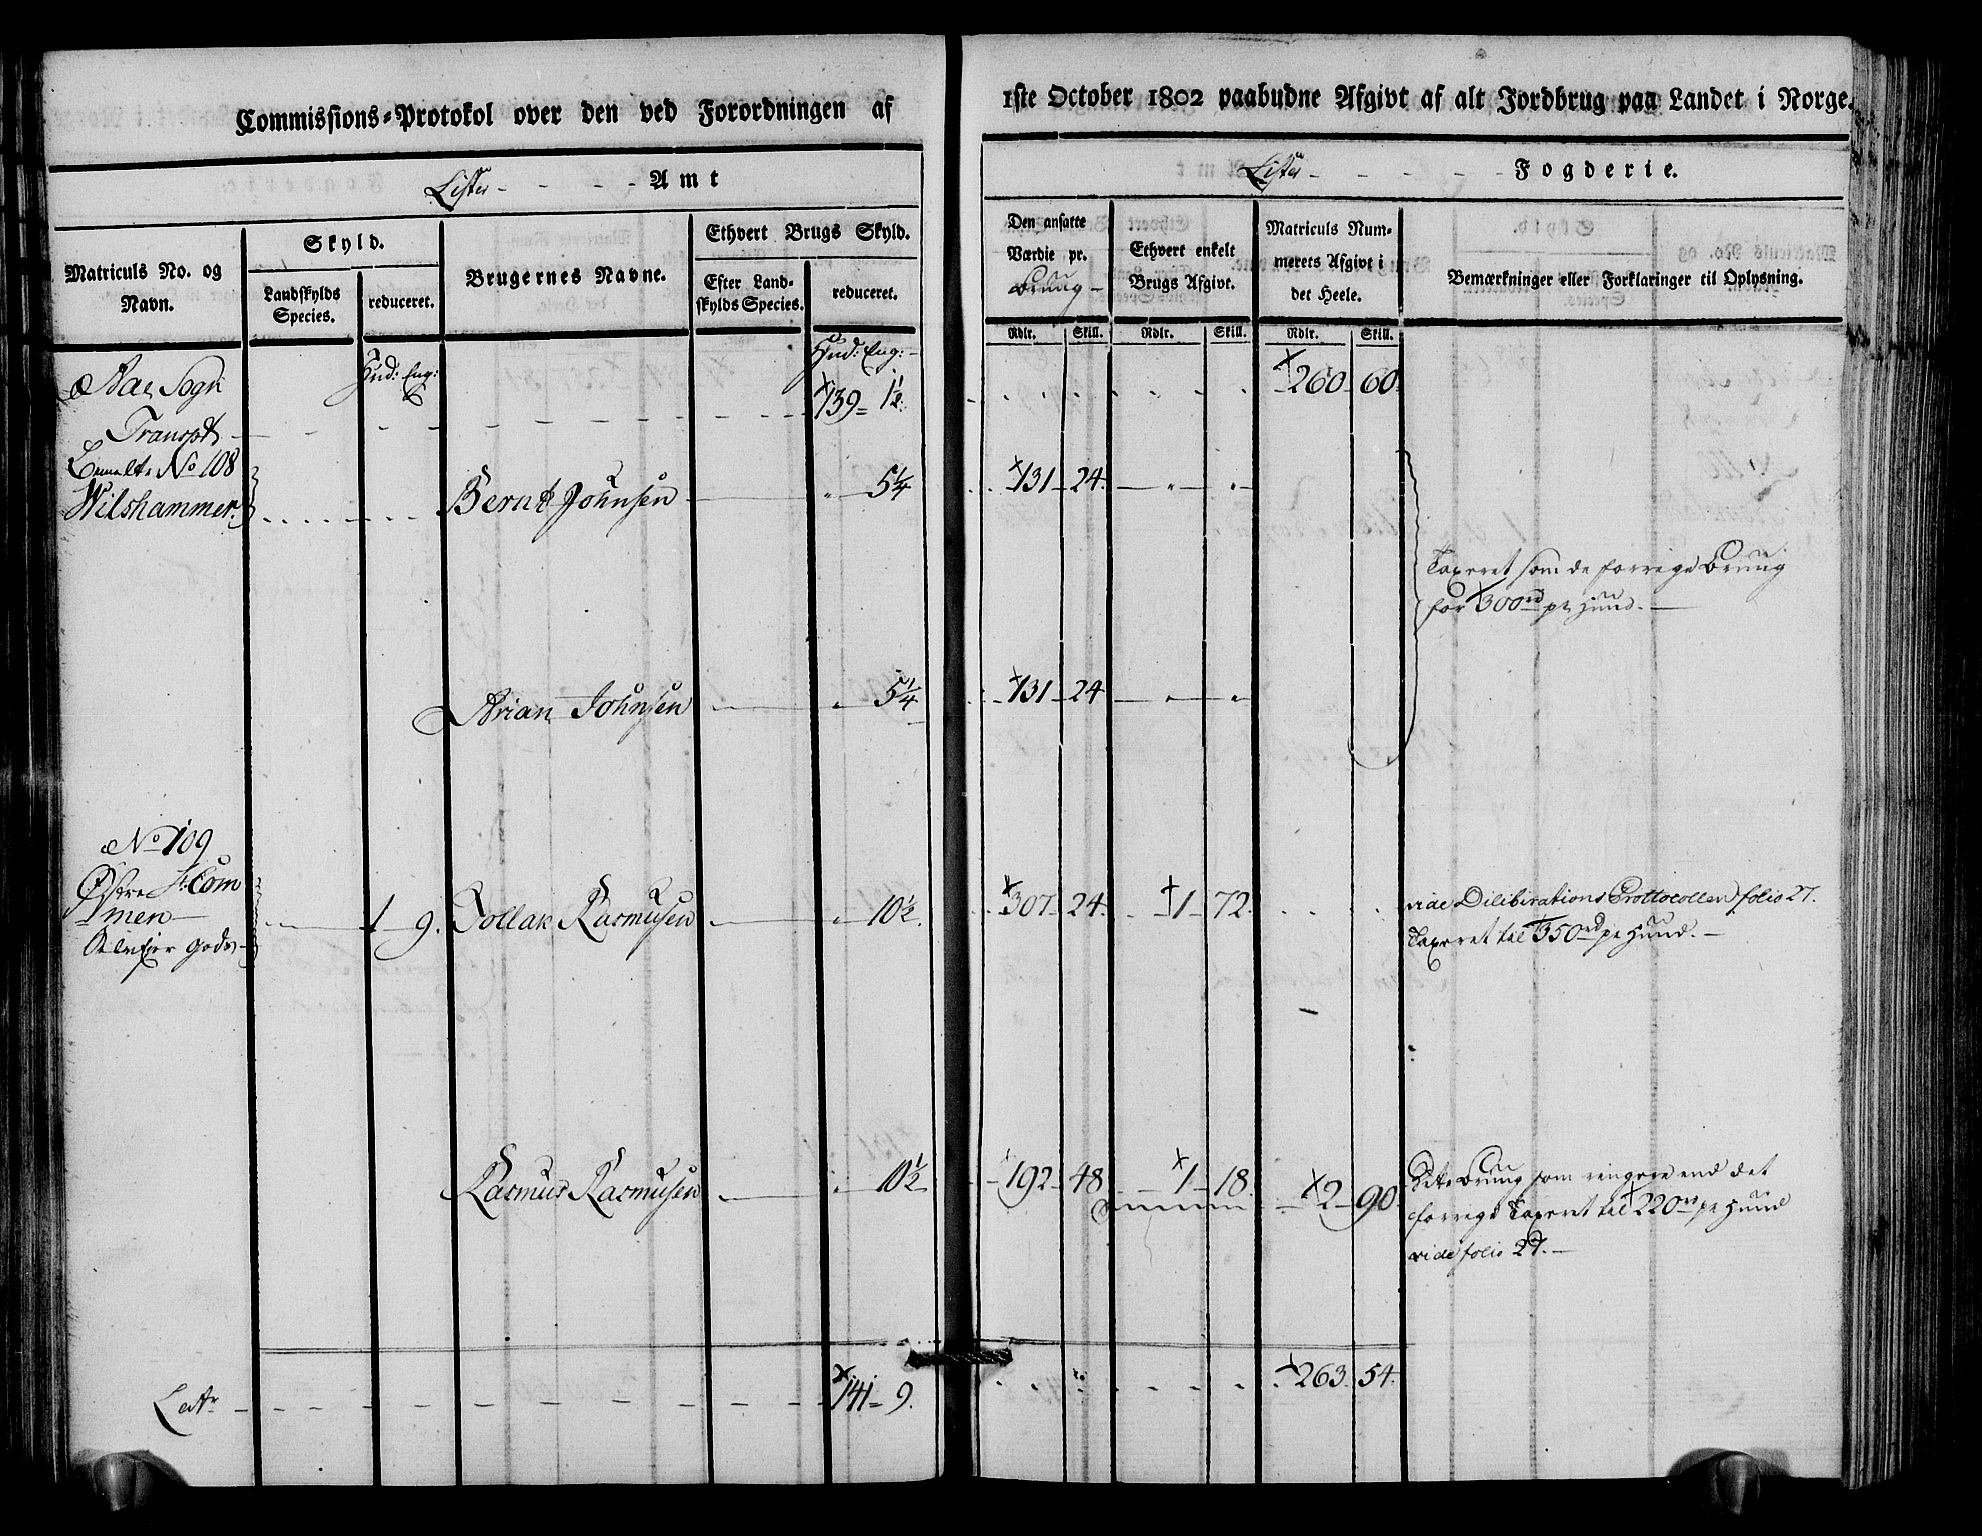 Commissions=Protokol over den ved Forordningen af
1ste October 1802 paabudne Afgivt af alt Jordbrug paa Landet i Norge.
Lister - - - - Amt
Lister - - - - - Fogderie.
Matriculs No. og Navn.
Skyld.
Landskylds Species.
reduceret.
Brugernes Navne.
Ethvert Brugs Skyld.
Efter Land-
skylds Species.
reduceret.
Den ansatte
Værdie pr.
Brug -
Ethvert enkelt
Brugs Afgivt.
Matriculs Num-
merets Afgivt i
det Heele.
Bemærkninger eller Forklaringer til Oplysning.
Rdlr. Skill. Rdlr. Skill. Rdlr. Skill.
Hud: Eng: Hud: Eng:
Aae Sogn
Transpt 139 - 1½. 260 - 60.
No 108
Wilshammer. Bernt Johnsen " 5¼ 131 - 24. - " - "
Taxeret som de forrige Brug
for 300rd pr Hund. -
Arian Johnsen " 5¼ 131 - 24 - " - "
No 109
Østre St: Com
men 1 9. Tollak Rasmusen " 10½ 307 - 24. 1 - 72. vide Dilibirations Prottocollen folio 27.
gods Taxeret til 350rd pr Hund. -
Rasmus Rasmusen " 10½ 192 - 48 1 - 18. 2 - 90. Dette Brug som ringere end det
forrige Taxeret til 220rd pr Hund
vide folio 27. -
Latr 141 - 9. 263. 54.